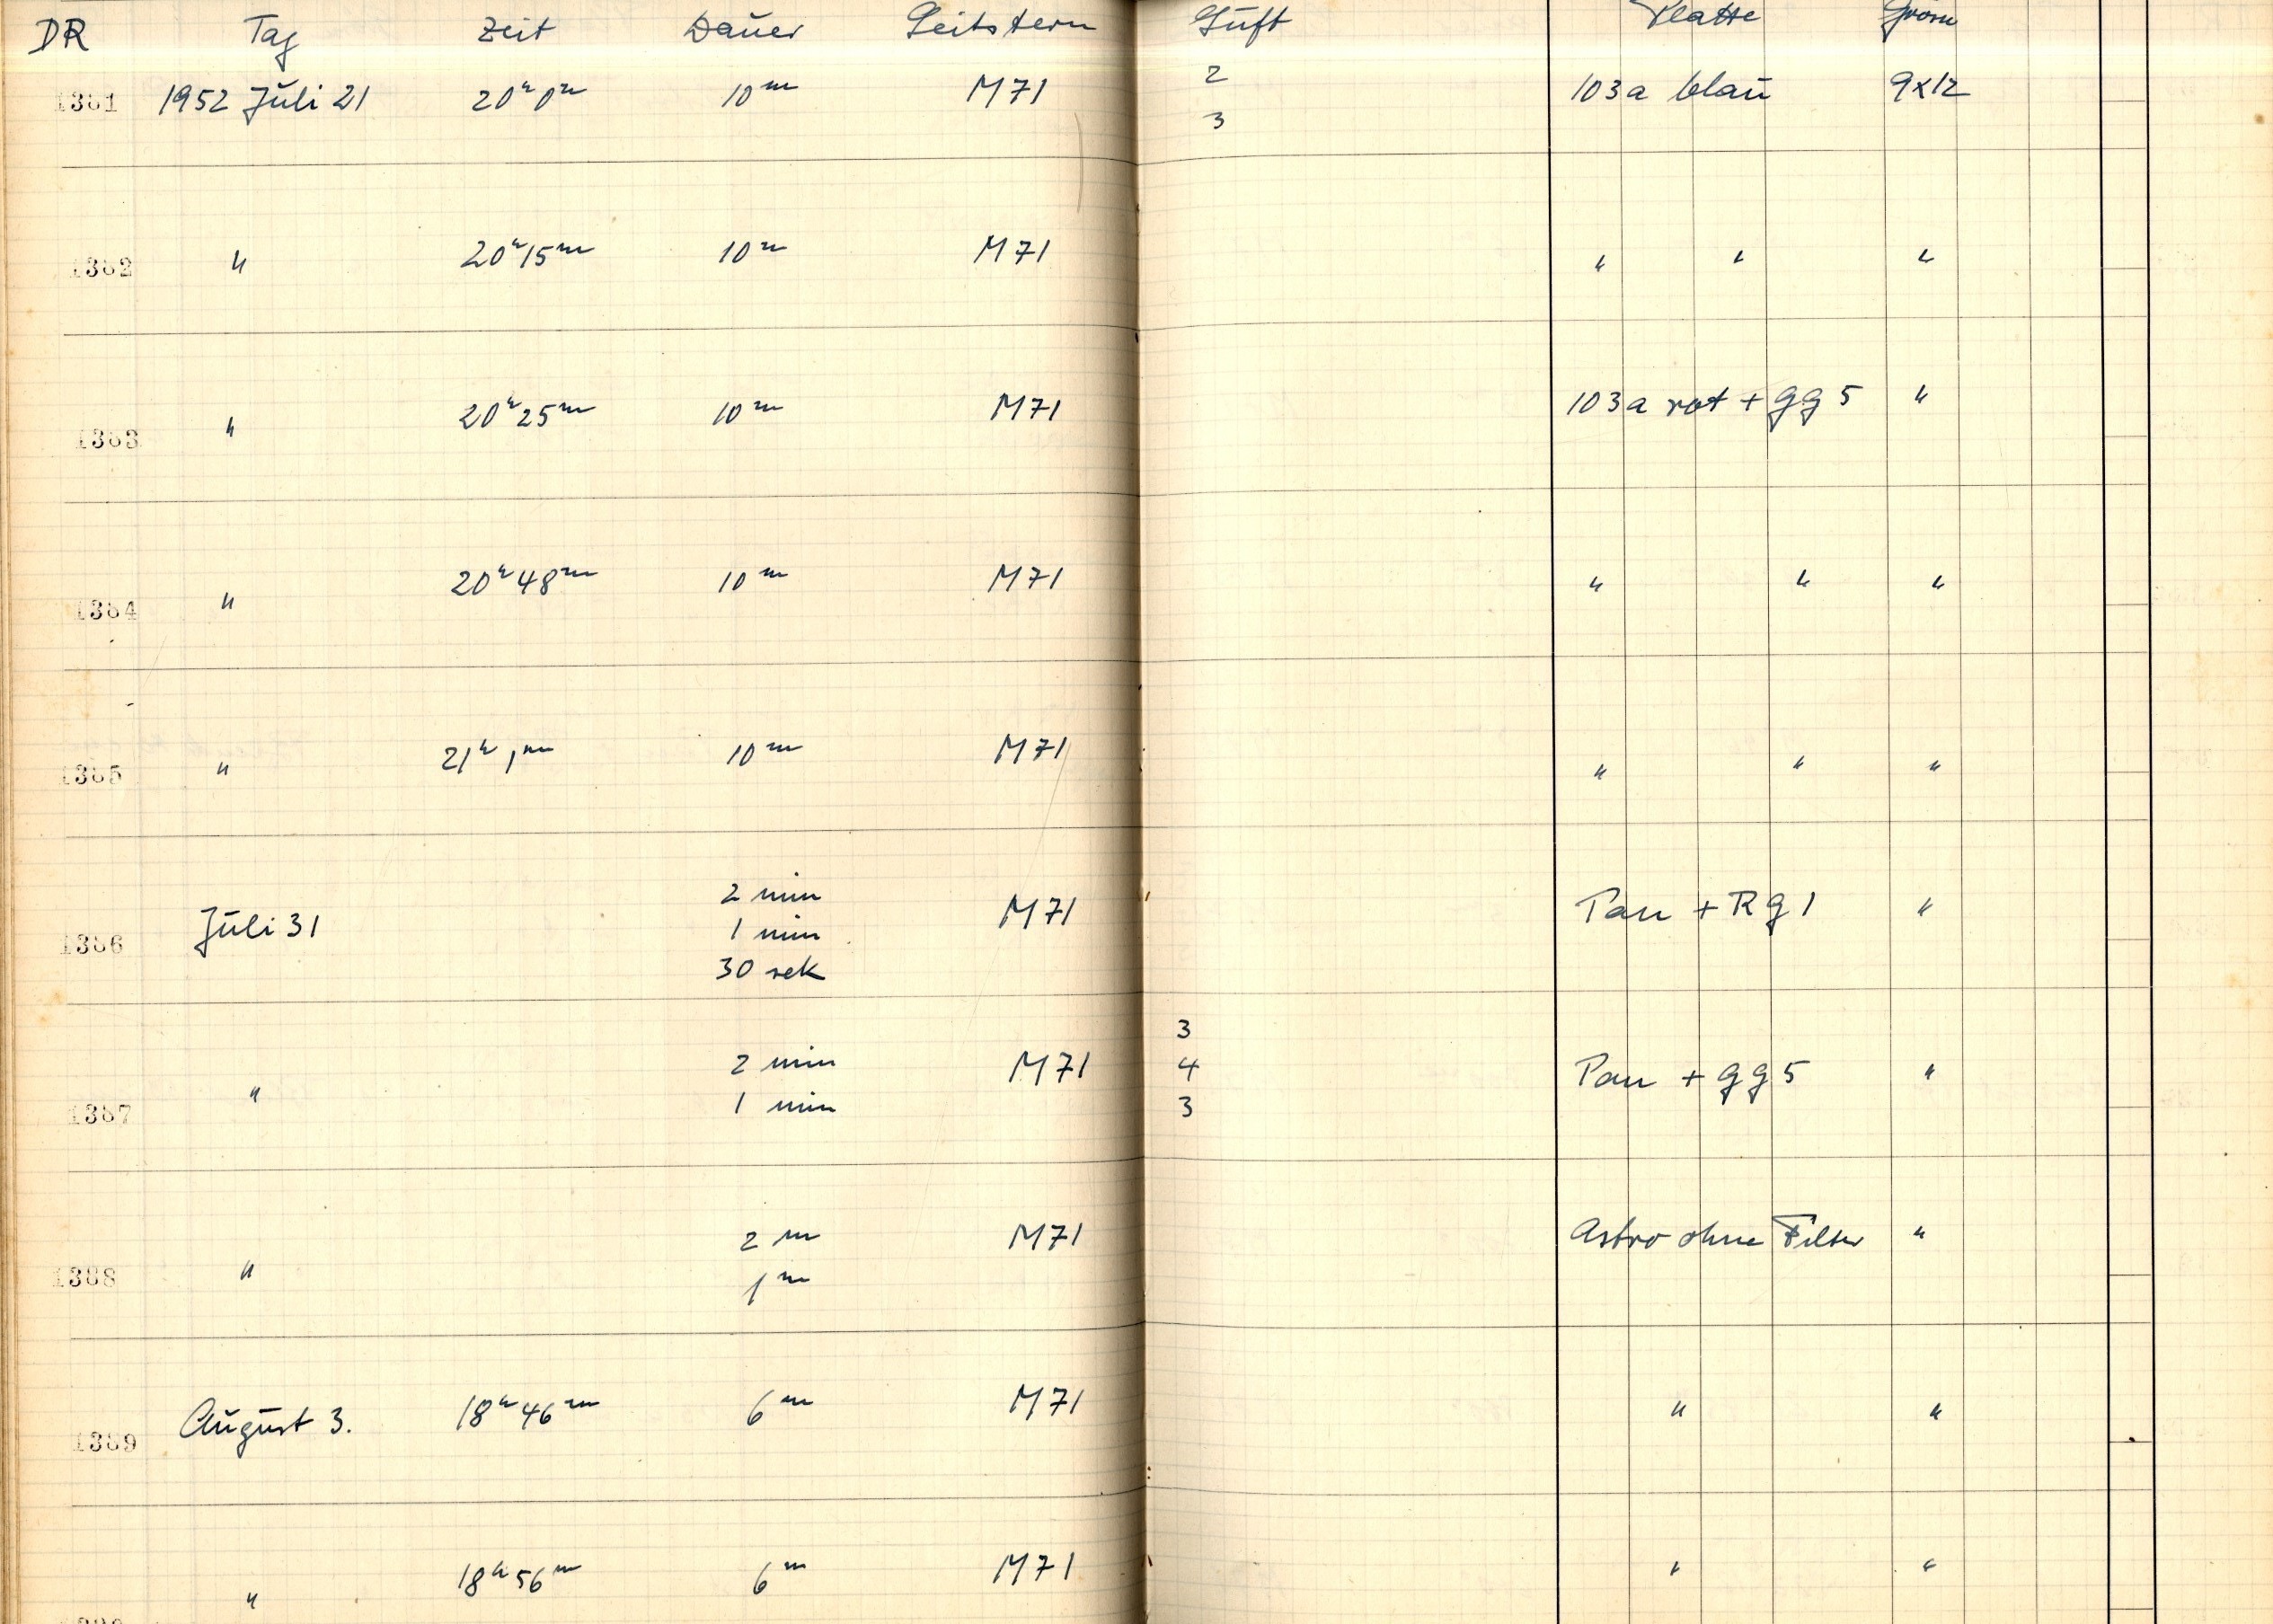 DR Tag Zeit Dauer Leitstern Luft Platte Grösse
1381 1952 Juli 21 20ʰ0ᵐ 10ᵐ M71 2 103a blau 9x12
3
1382 " 20ʰ15ᵐ 10ᵐ M71 " " "
1383 " 20ʰ25ᵐ 10ᵐ M71 103a rot + gg 5 "
1384 " 20ʰ48ᵐ 10ᵐ M71 " " "
1385 " 21ʰ1ᵐ 10ᵐ M71 " " "
2 min
1386 Juli 31 1 min M71 Pan + Rg1 "
30 sek
3
1387 " 2 min M71 4 Pan + gg5 "
1 min 3
1388 " 2ᵐ M71 Astro ohne Filter "
1ᵐ
1389 August 3. 18ʰ46ᵐ 6ᵐ M71 " "
" 18ʰ56ᵐ 6ᵐ M71 " "